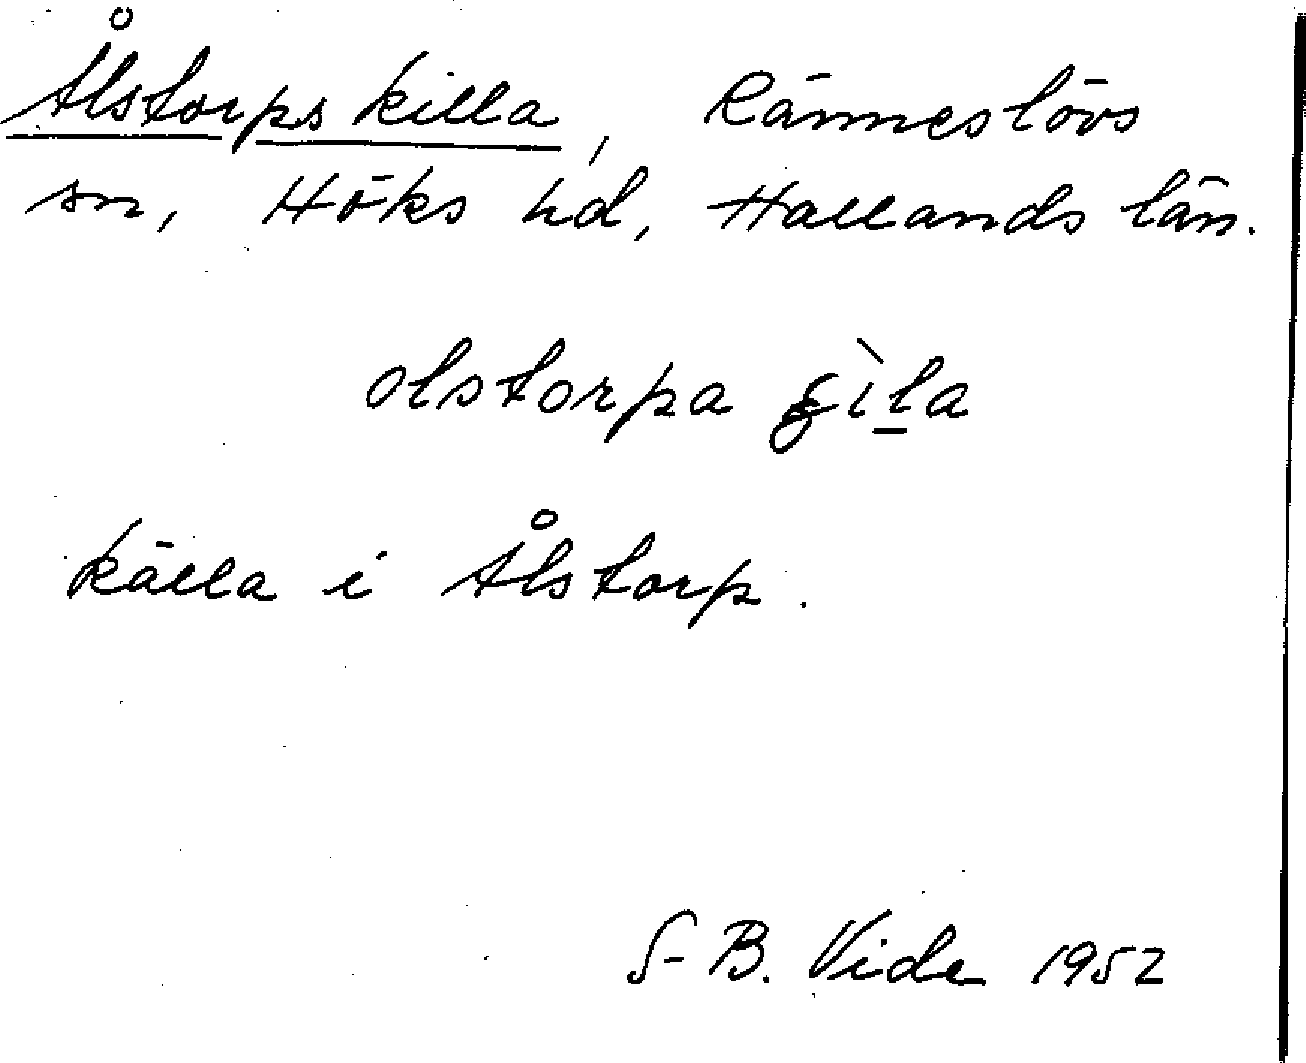 Ålstorps killa, Ränneslövs
sn, Höks hd, Hallands län.
olstorpa ɕìl̲a
källa i Ålstorp.
S-B. Vide 1952